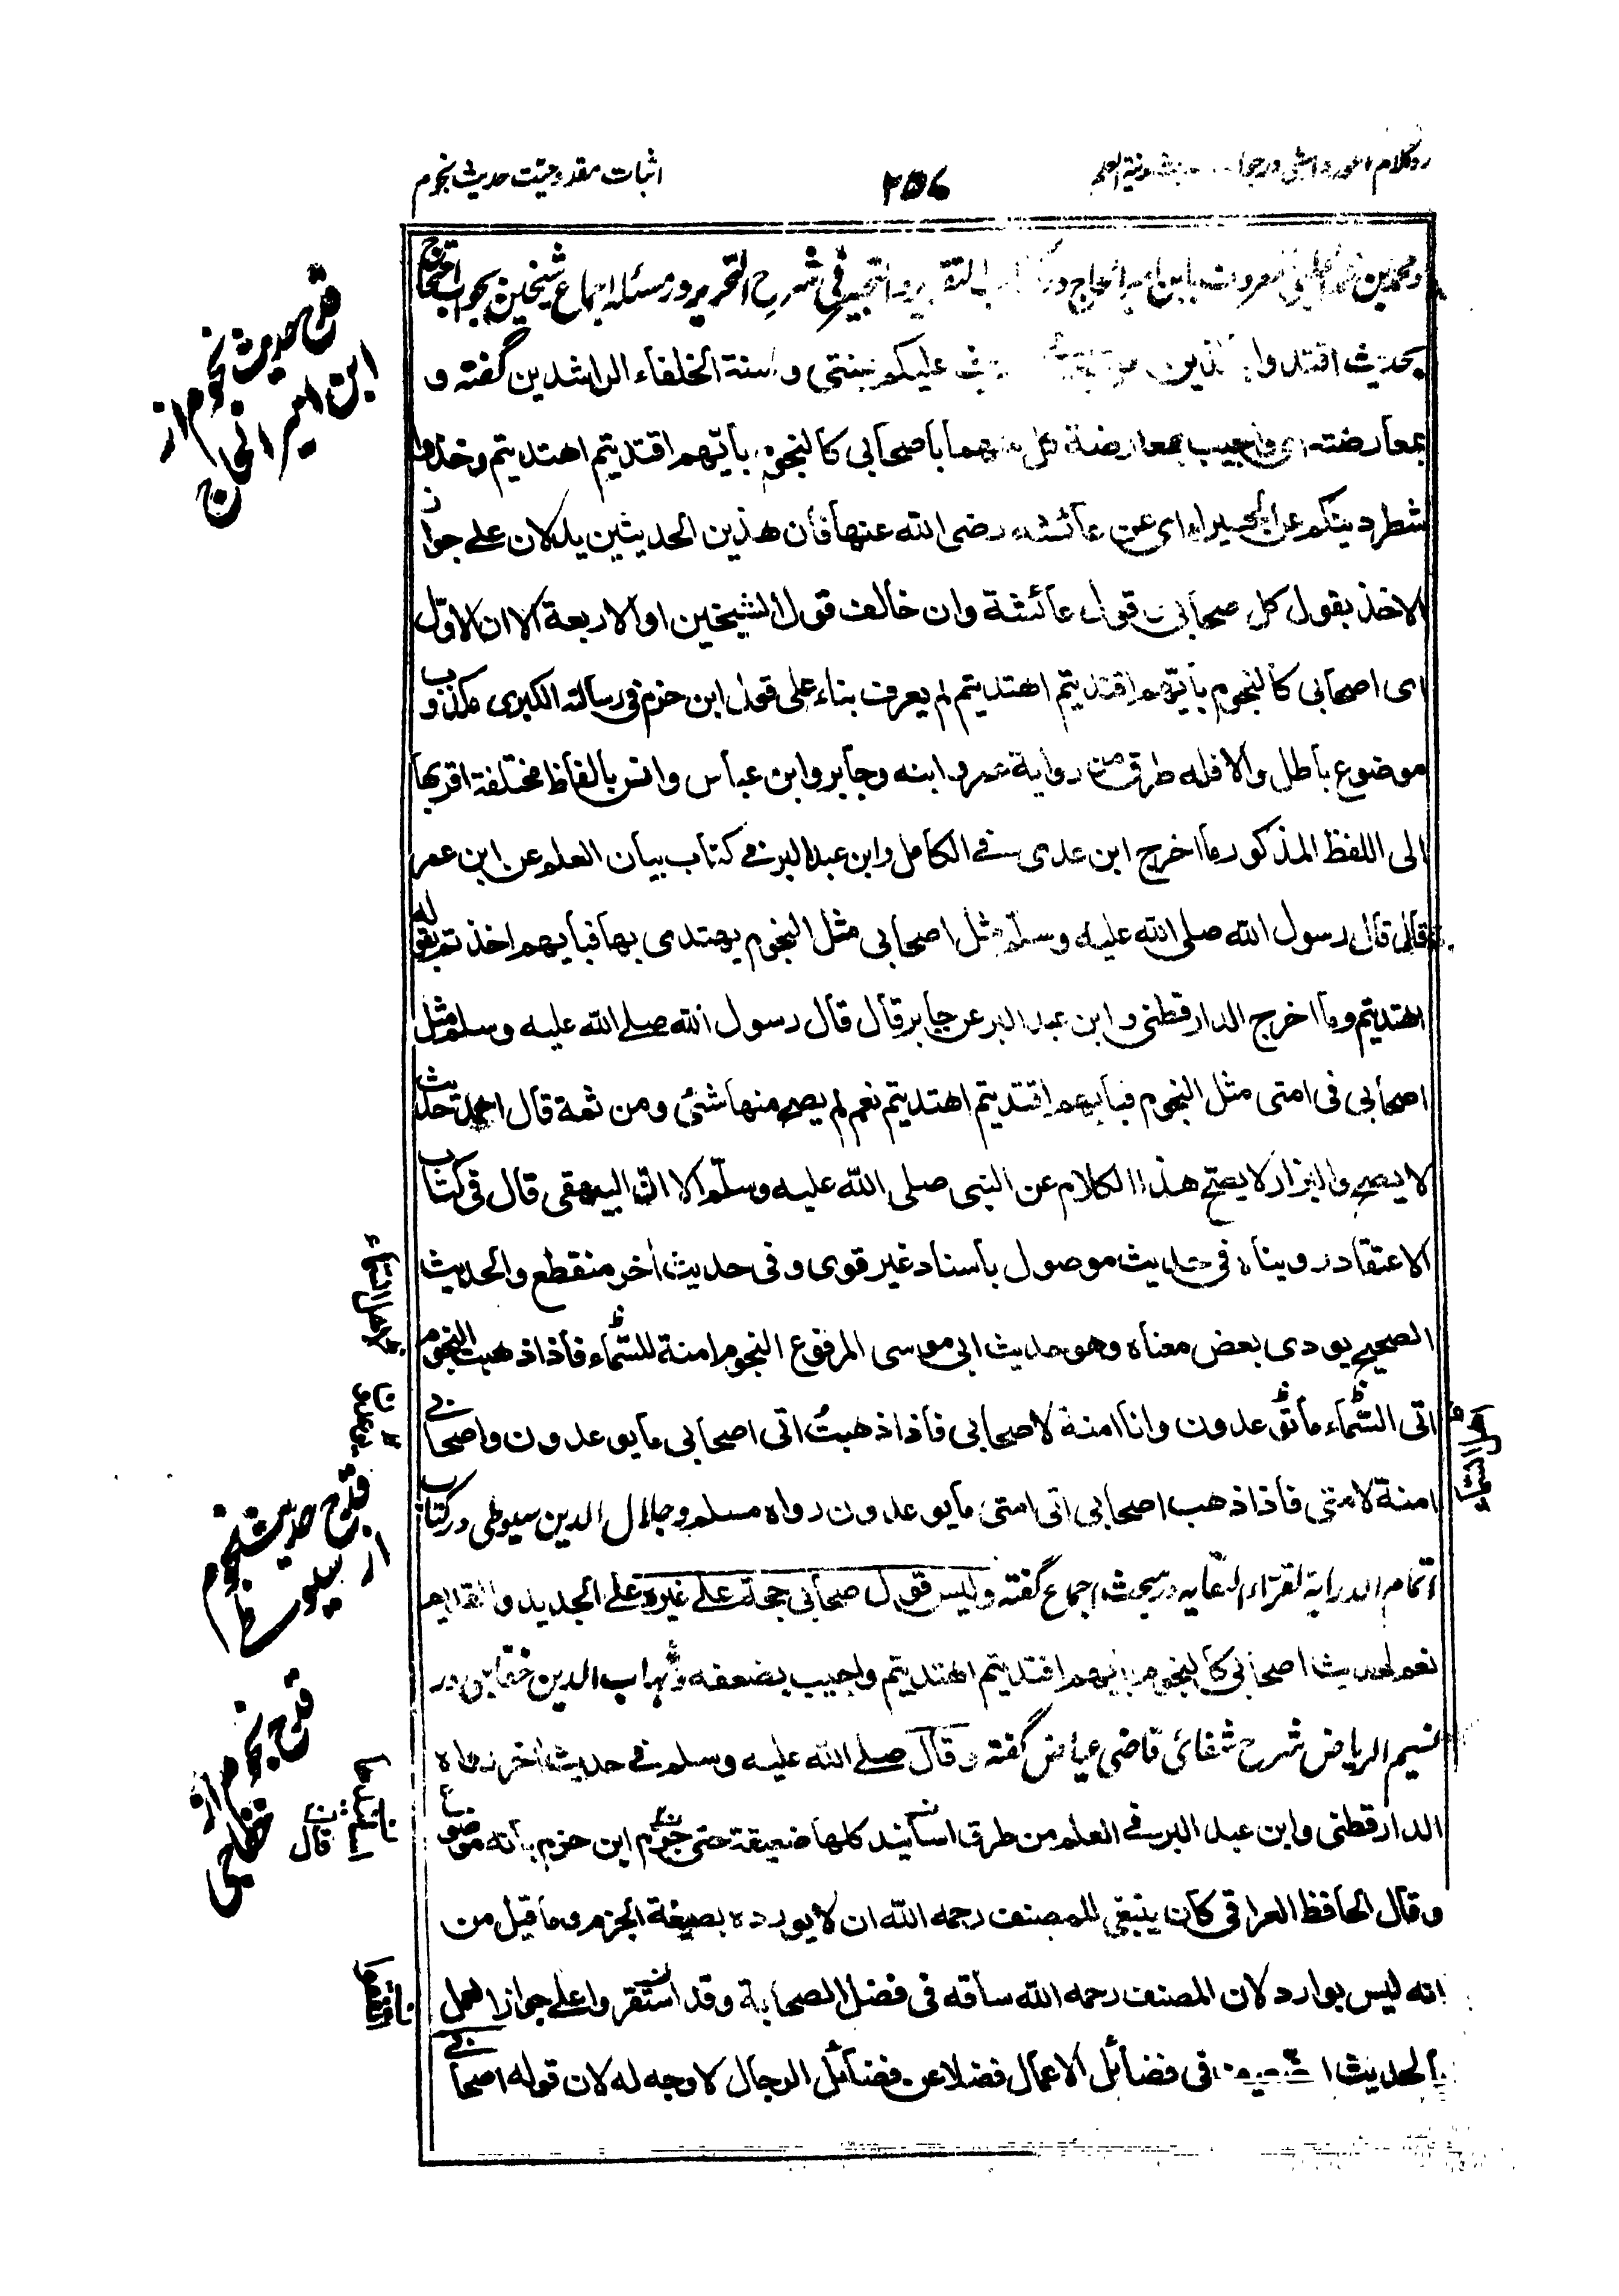 اثبات مقدوحیت حدیث نجوم
۲۵۶
ومحمد بن محمد الحلبی المعروف بابن امیر الحاج در کتاب التقریر والتحبیر فی شرح التحریر در مسئله اجماع شیخین بجواب احتجاج
بحدیث اقتدوا بالذین علیکم بسنتی وسنة الخلفاء الراشدین گفته و
بمعارضته ای واجیب بمعارضة کل منهما باصحابی کالنجوم بایهم اقتدیتم اهتدیتم وخذوا
شطر دینکم عن الحمیراء ای عن عائشة رضی الله عنها فان هذین الحدیثین یدلان علی جواز
الاخذ بقول کل صحابی وقول عائشة وان خالف قول الشیخین او الاربعة الا ان الاول
ای اصحابی کالنجوم بایهم اقتدیتم اهتدیتم لم یعرف بناء علی قول ابن حزم فی رسالته الکبری مکذوب
موضوع باطل والا فله طرق من روایة عمر وابنه وجابر وابن عباس وانس بالفاظ مختلفة اقربها
الی اللفظ المذکور ما اخرج ابن عدی فی الکامل وابن عبد البر فی کتاب بیان العلم عن ابن عمر
قال قال رسول الله صلی الله علیه وسلم مثل اصحابی مثل النجوم یهتدی بها فبایهم اخذتم بقوله
اهتدیتم وما اخرج الدارقطنی وابن عبد البر عن جابر قال قال رسول الله صلے الله علیه وسلم مثل
اصحابی فی امتی مثل النجوم فبایهم اقتدیتم اهتدیتم نعم لم یصح منها شئ ومن ثمة قال احمد حدیث
لا یصح والبزار لا یصح هذا الکلام عن النبی صلی الله علیه وسلم الا ان البیهقی قال فی کتاب
الاعتقاد رویناه فی حدیث موصول باسناد غیر قوی وفی حدیث اخر منقطع والحدیث
الصحیح یودی بعض معناه وهو حدیث ابی موسی المرفوع النجوم امنة للسماء فاذا ذهبت النجوم
اتی السماء ما توعدون وانا امنة لاصحابی فاذا ذهبت اتی اصحابی ما یوعدون واصحابی
امنة لامتی فاذا ذهب اصحابی اتی امتی ما یوعدون رواه مسلم وجلال الدین سیوطی در کتاب
اتمام الدرایة لقراء النقایه در مبحث اجماع گفته ولیس قول صحابی حجة علے غیره علے الجدید والقدیم
نعم لحدیث اصحابی کالنجوم بایهم اقتدیتم اهتدیتم واجیب بضعفه وشهاب الدین خفاجی در
نسیم الریاض شرح شفائ قاضی عیاض گفته وقال صلے الله علیه وسلم فے حدیث اخر رواه
الدارقطنی وابن عبد البر فے العلم من طرق اسانید کلها ضعیفة حتی جزم ابن حزم بانه موضوع
وقال الحافظ العراقی کان ینبغی للمصنف رحمه الله ان لا یورده بصیغة الجزم وما قیل من
انه لیس بوارد لان المصنف رحمه الله ساقه فی فضل الصحابة وقد استقروا علے جواز العمل
بالحدیث الضعیف فی فضائل الاعمال فضلا عن فضائل الرجال لا وجه له لان قوله اصحابی
قدح حدیث نجوم از
ابن امیر الحاج
قدح حدیث نجوم
از سیوطی
قدح نجوم از
خفاجی